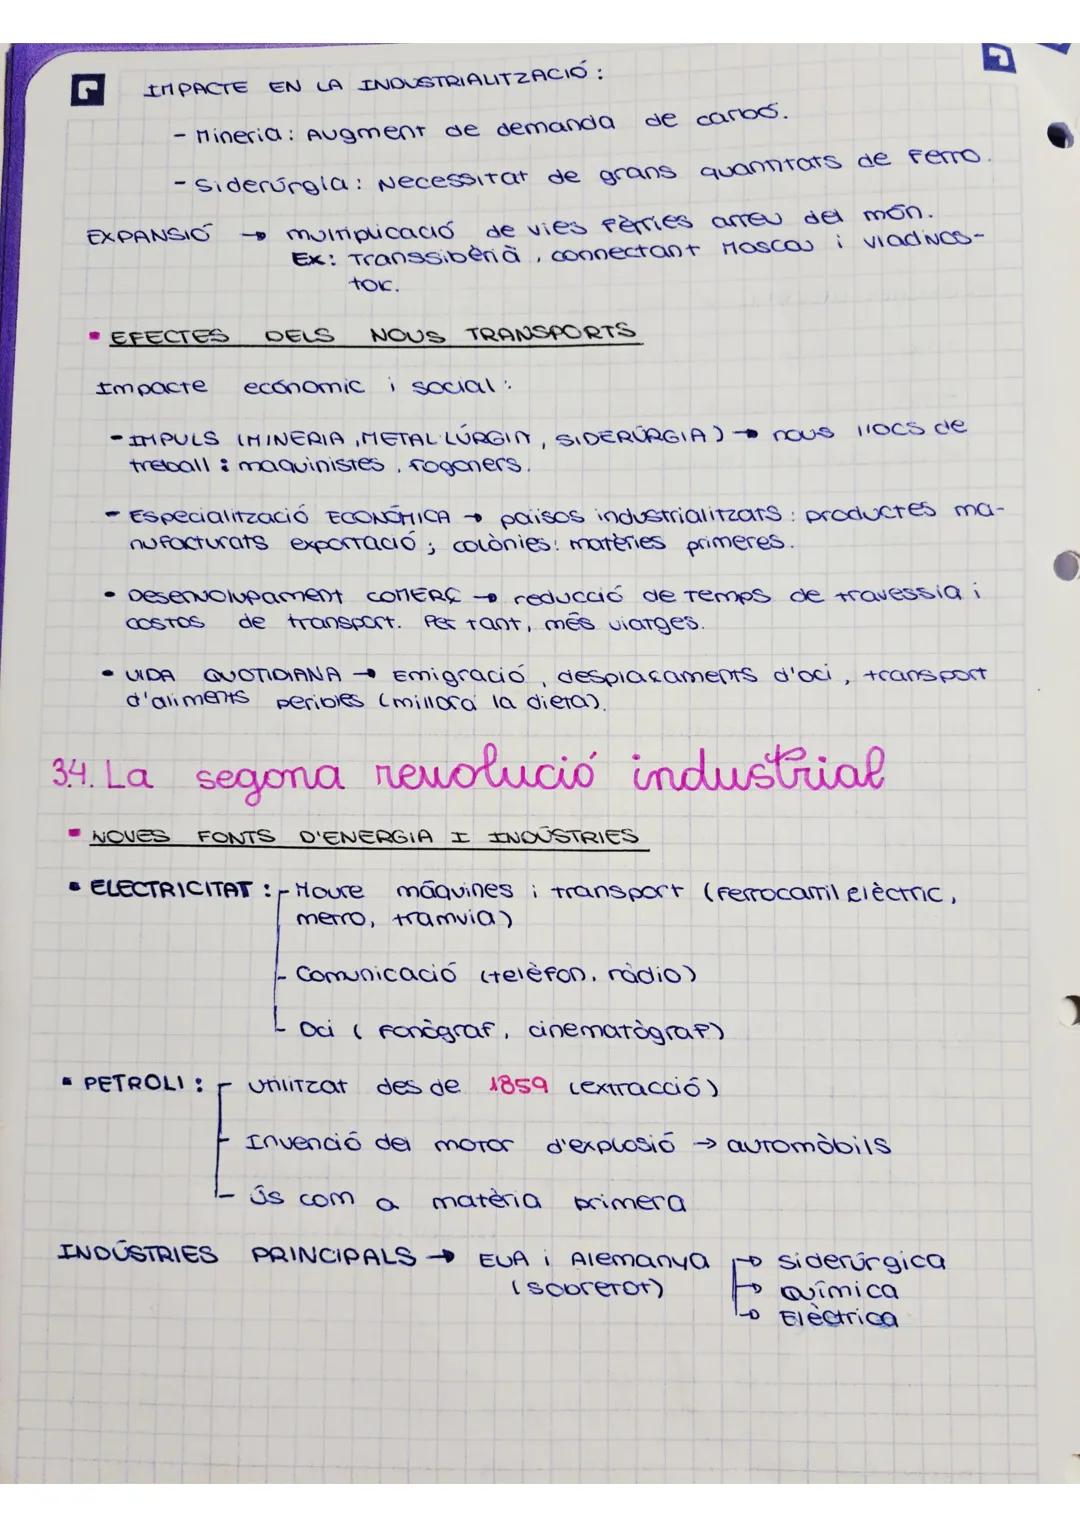 IMPACTE EN LA INDUSTRIALITZACIÓ:
- Mineria: Augment de demanda de carbó.
- Siderúrgia: Necessitat de grans quantitats de ferro.
EXPANSIÓ → multiplicació de vies fèrries arreu del món.
Ex: Transsiberià, connectant Moscou i Vladivos-
tok.
▪ EFECTES DELS NOUS TRANSPORTS
Impacte econòmic i social:
- IMPULS (MINERIA, METAL·LÚRGIA, SIDERÚRGIA) → nous llocs de
treball: maquinistes, fogoners.
- Especialització ECONÒMICA → països industrialitzats: productes ma-
nufacturats exportació; colònies: matèries primeres.
• Desenvolupament COMERÇ → reducció de temps de travessia i
costos de transport. Per tant, més viatges.
• VIDA QUOTIDIANA → Emigració, desplaçaments d'oci, transport
d'aliments peribles (millora la dieta).
3.4. La segona revolució industrial
▪ NOVES FONTS D'ENERGIA I INDÚSTRIES
▪ ELECTRICITAT: - Moure màquines i transport (ferrocarril elèctric,
metro, tramvia)
- Comunicació (telèfon, ràdio)
- Oci (fonògraf, cinematògraf)
▪ PETROLI: - Utilitzat des de 1859 (extracció)
- Invenció del motor d'explosió → automòbils
- Ús com a matèria primera
INDÚSTRIES PRINCIPALS → EUA i Alemanya → siderúrgica
(sobretot) → Química
→ Elèctrica